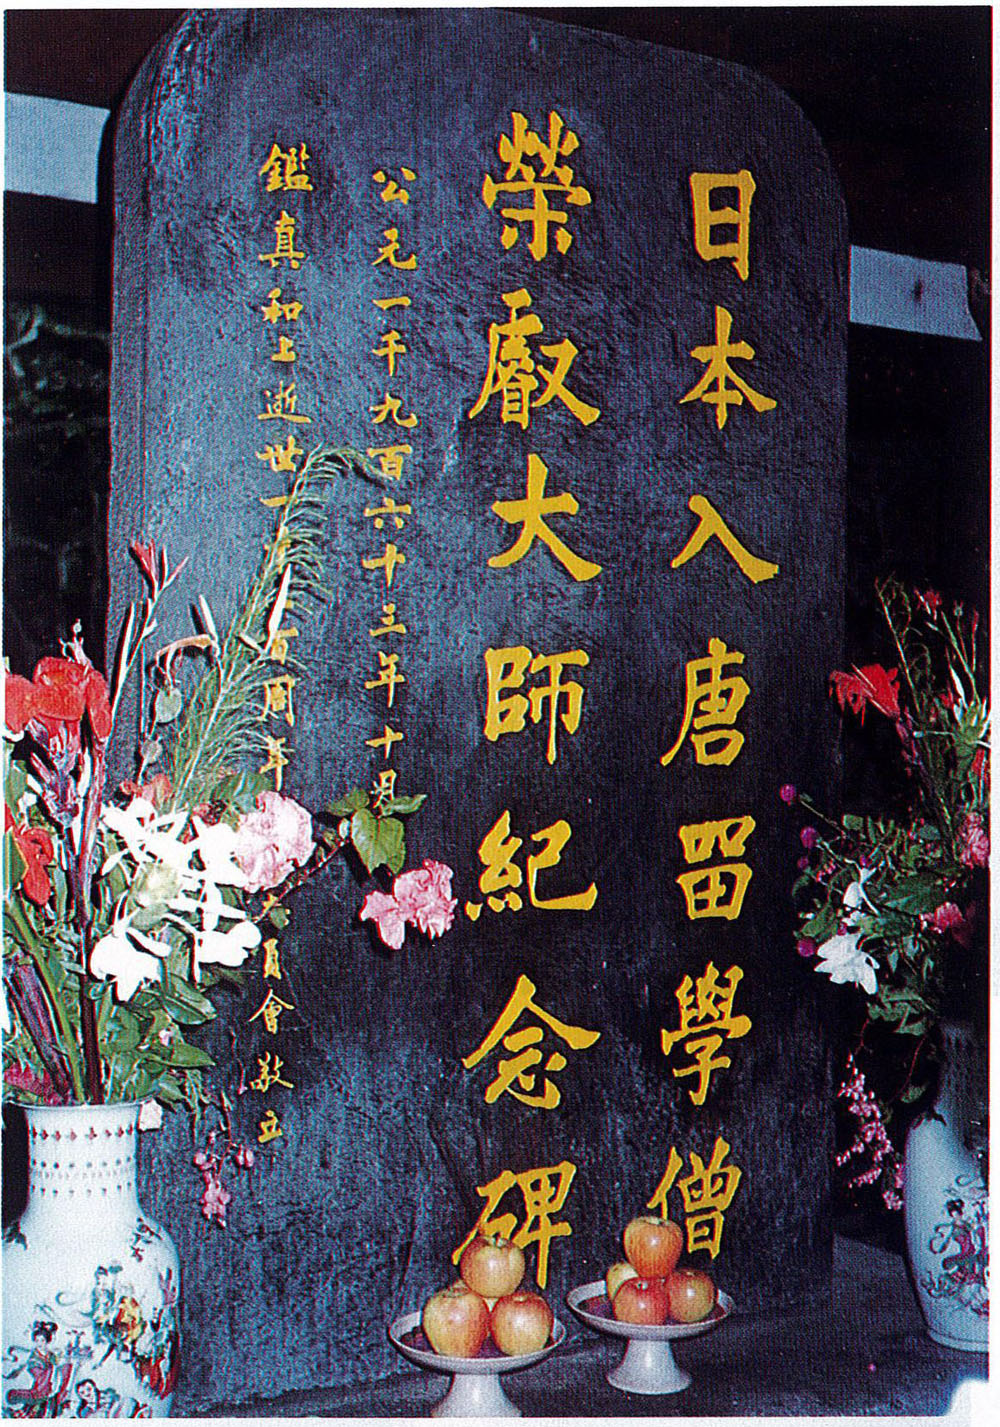 日本入唐留學僧
榮叡大師紀念碑
公元一千九百六十三年十月
鑑真和上逝世一千二百周年 會敬立